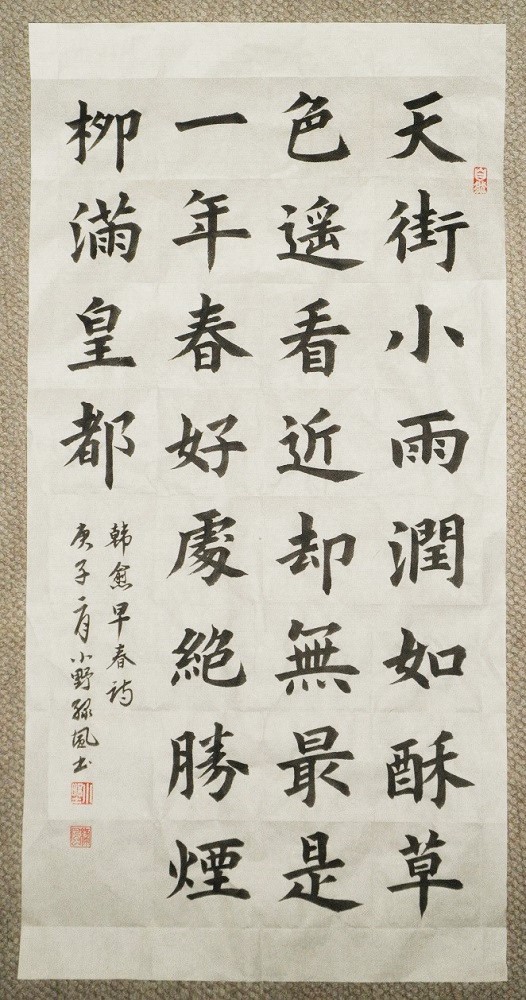 天街小雨潤如酥草
色遥看近却無最是
一年春好處絕勝煙
柳滿皇都
韩愈早春诗
庚子二月小野